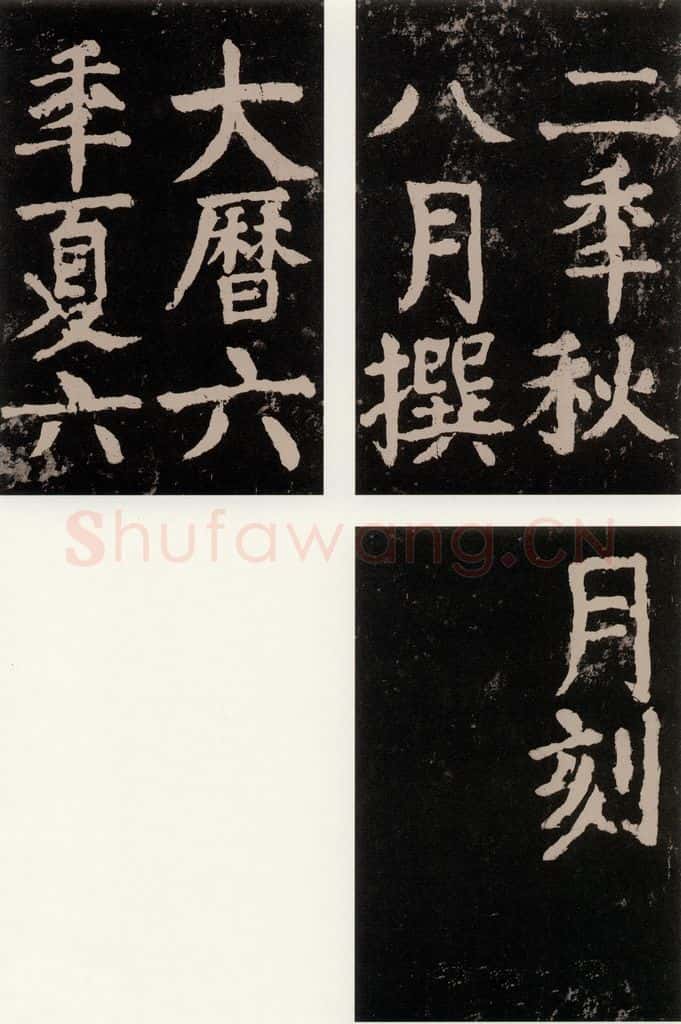 二秊秋
八月撰
大曆六
秊夏六
月刻
Shufawang.CN